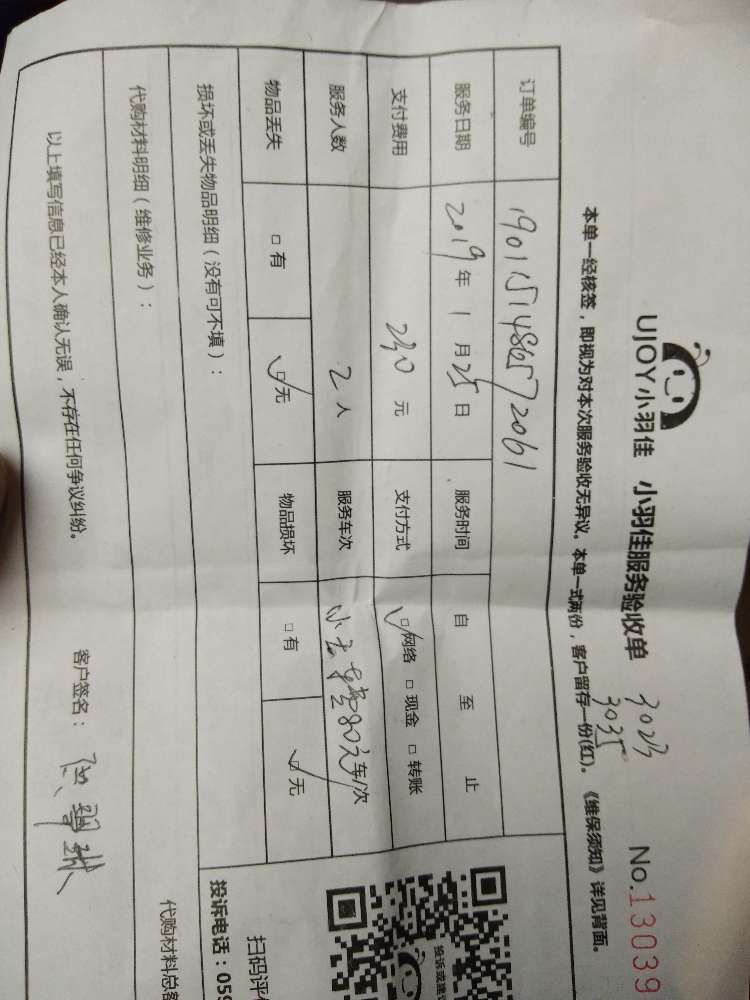 UJOY小羽佳 小羽佳服务验收单
3023
3035
No.13039
本单一经核签，即视为对本次服务验收无异议。本单一式两份，客户留存一份(红)。《维保须知》详见背面。
订单编号 1901151486572061
服务日期 2019年1月25日 服务时间 自 至 止
支付费用 240元 支付方式 ☑网络 □现金 □转账
服务人数 2人 服务车次 80元车/次
物品丢失 □有 ☑无 物品损坏 □有 ☑无
损坏或丢失物品明细（没有可不填）：
代购材料明细（维修业务）： 代购材料总
以上填写信息已经本人确认无误，不存在任何争议纠纷。 客户签名：
投诉或建
扫码评
投诉电话：059